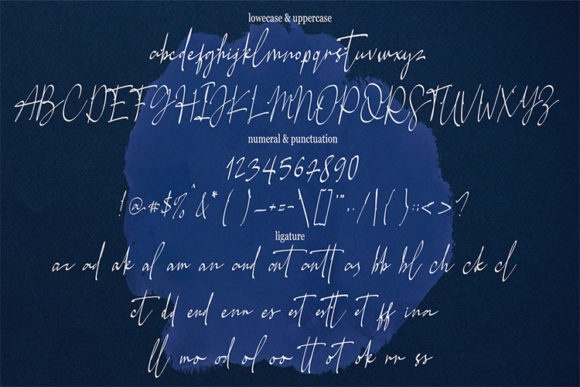 lowecase & uppercase
abcdefghijklmnopqrstuvwxyz
ABCDEFGHIJKLMNOPQRSTUVWXYZ
numeral & punctuation
1234567890
!@#$%^&*()_+=-\[]'",./|{ }:;<>?
ligature
ar ad ak al am an and ant antt as bb bl ch ck cl
ct dd end enn es est estt et ff ina
ll mo od ol oo tt ot ok rr ss